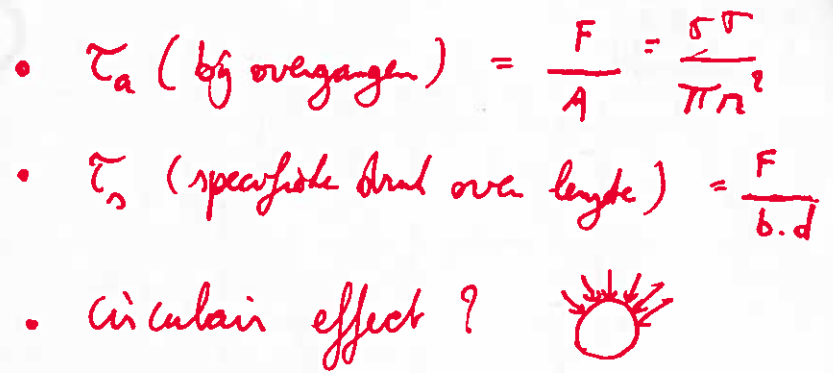 • τa (bij overgangen) = F/A = ΣΣ/πr²
• τs (specifieke druk over lengte) = F/b.d
• circulair effect ?